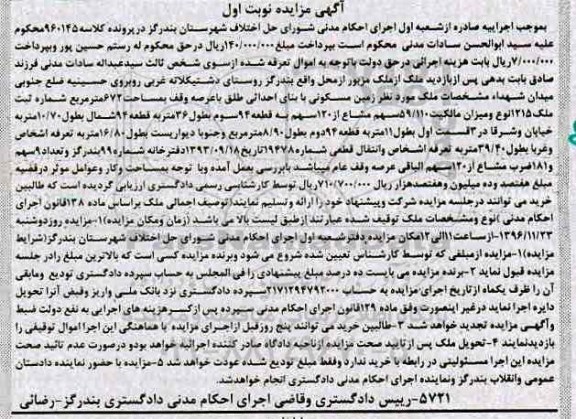 آگهی مزایده نوبت اول
بموجب اجراییه صادره ازشعبه اول اجرای احکام مدنی شورای حل اختلاف شهرستان بندرگز درپرونده کلاسه ۹۶۰۱۴۵محکوم
علیه سید ابوالحسن سادات مدنی محکوم است بپرداخت مبلغ۱۴۰/۰۰۰/۰۰۰ریال درحق محکوم له رستم حسین پور وبپرداخت
۷/۰۰۰/۰۰۰ریال بابت هزینه اجرائی درحق دولت باتوجه به اموال تعرفه شده ازسوی شخص ثالث سیدعبداله سادات مدنی فرزند
صادق بابت بدهی پس ازبازدید ملک ازملک مزبور ازمحل واقع بندرگز روستای دشتیکلاته غربی روبروی حسینیه ضلع جنوبی
میدان شهداء مشخصات ملک مورد نظر زمین مسکونی با بنای احداثی طلق باعرصه وقف بمساحت۶۷۳مترمربع شماره ثبت
ملک۱۳۱۵نوع ومیزان مالکیت۵۹/۱۱۰سهم مشاع از۱۲۰سهم به قطعه۹۴سوم بطول۳۶متربه قطعه۹۴شمال بطول۱۰/۷۰متربه
خیابان وشرقا در۳قسمت اول بطول۱۱متربه قطعه۹۴دوم بطول۸/۹۰مترمربع وجنوبا دیواریست بطول۱۶/۸۰متربه تعرفه اشخاص
وغربا بطول۳۹/۴۰متربه تعرفه اشخاص وانتقال قطعی شماره۱۹۴۷۸تاریخ۱۳۹۳/۰۹/۱۸دفترخانه شماره۹۹بندرگز وتعداد۹سهم
و۱۸۱ضرب مشاع از۱۲۰سهم الباقی عرصه وقف عام میباشد بابررسی بعمل آمده وبا توجه بمساحت وکار وعوامل موثر درقضیه
مبلغ هفتصد وده میلیون وهفتصدهزار ریال ۷۱۰/۷۰۰/۰۰۰ریال توسط کارشناسی رسمی دادگستری ارزیابی گردیده است که طالبین
خرید می توانند درجلسه مزایده شرکت وپیشنهاد خود را ارائه وتسلیم نمایند(توصیف اجمالی ملک براساس ماده ۱۳۸قانون اجرای
احکام مدنی )نوع ومشخصات ملک توقیف شده عبارتند ازطبق لیست بالا می باشد (زمان ومکان مزایده)۱-مزایده روزدوشنبه
۱۳۹۶/۱۱/۲۳-ازساعت۱۱الی۱۲مکان مزایده دفترشعبه اول اجرای احکام مدنی شورای حل اختلاف شهرستان بندرگز(شرایط
مزایده)۱-مزایده ازمبلغی که توسط کارشناس تعیین شده شروع می شود وبرنده مزایده کسی است که بالاترین مبلغ رادر جلسه
مزایده قبول نماید ۲-برنده مزایده می بایست ده درصد مبلغ پیشنهادی را فی المجلس به حساب سپرده دادگستری تودیع ومابقی
آن را ظرف یکماه ازتاریخ اجرای مزایده به حساب ۲۱۷۱۲۹۴۷۹۲۰۰۰سپرده دادگستری نزد بانک ملی واریز وفیض آنرا تحویل
دایره اجرا نماید درغیر اینصورت وفق ماده ۱۲۹قانون اجرای احکام مدنی سپرده پس ازکسر هزینه های اجرایی به نفع دولت ضبط
وآگهی مزایده تجدید خواهد شد ۳-طالبین خرید می توانند پنج روزقبل ازاجرای مزایده با هماهنگی این اجرا اموال توقیفی را
بازدیدنمایند ۴-تحویل ملک پس ازتایید صحت مزایده ازناحیه دادگاه صادر کننده اجرائیه خواهد بودو درصورت عدم تائید صحت
مزایده این اجرا مسئولیتی در رابطه با خرید ندارد وفقط مبلغ تودیع شده عودت خواهد شد ۵-مزایده با حضور نماینده دادستان
عمومی وانقلاب بندرگز ونماینده اجرای احکام مدنی دادگستری انجام خواهدشد.
۵۷۲۱-رییس دادگستری وقاضی اجرای احکام مدنی دادگستری بندرگز-رضائی